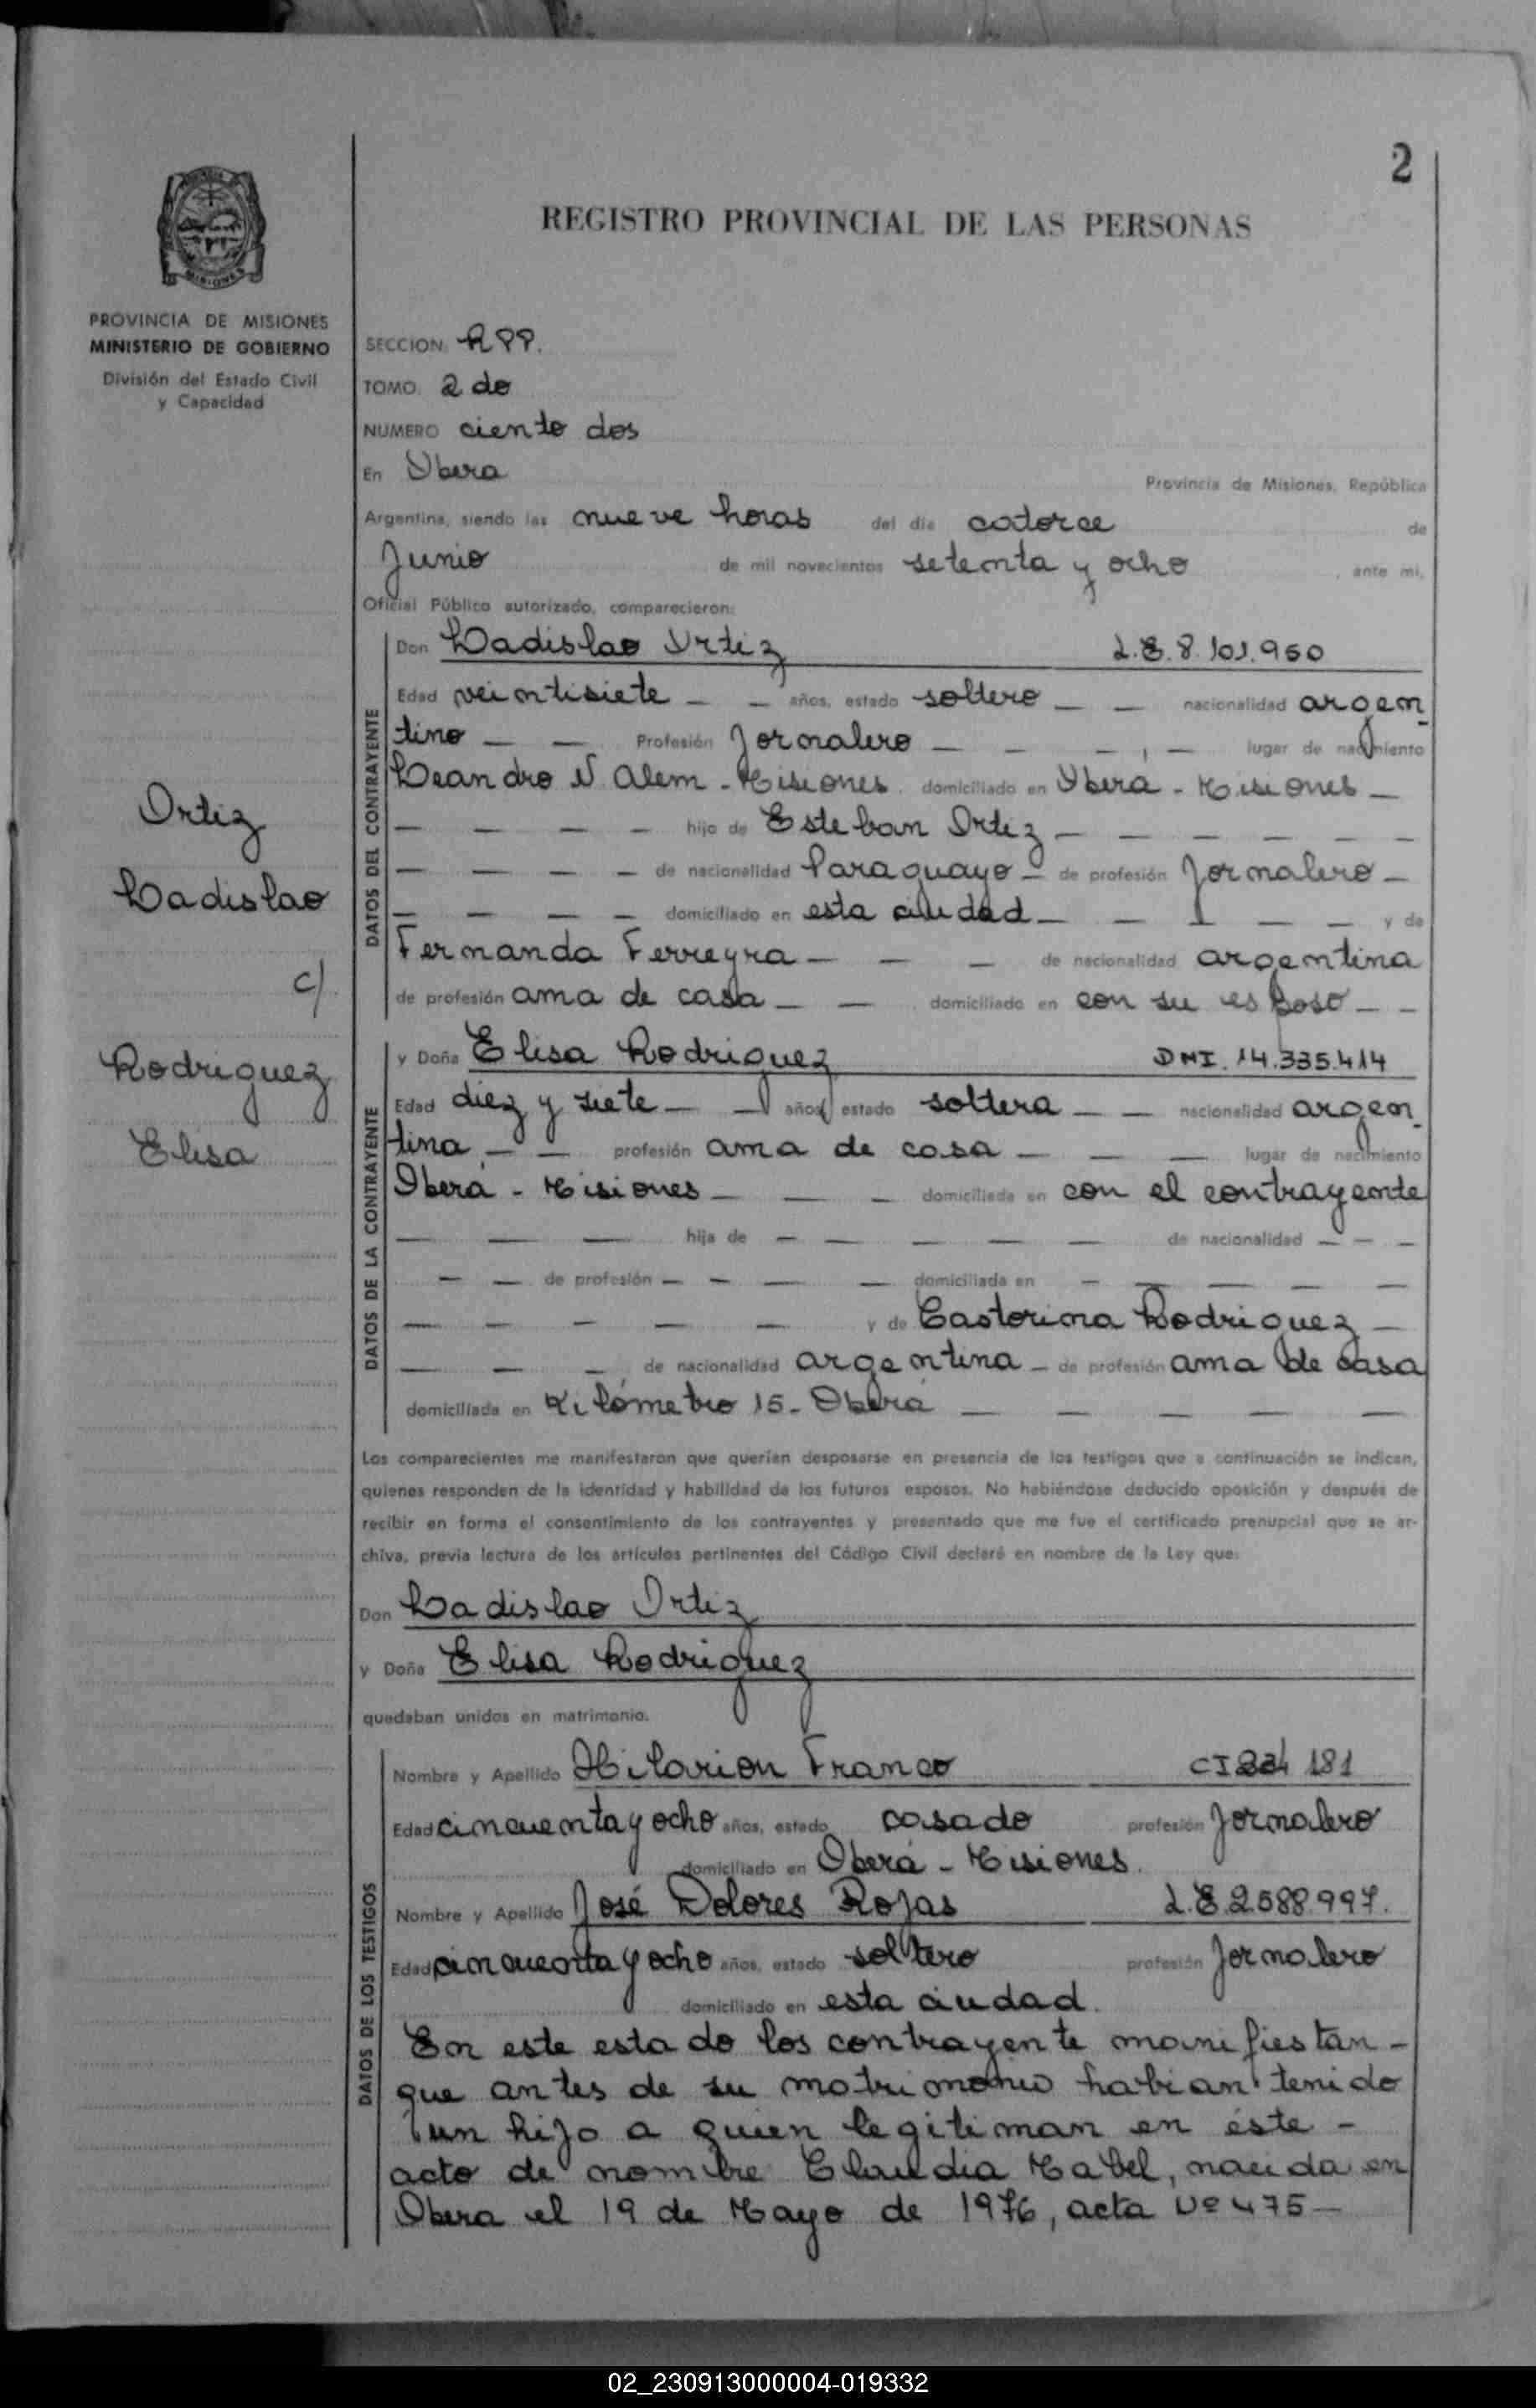 2
REGISTRO PROVINCIAL DE LAS PERSONAS
MISIONES
PROVINCIA DE MISIONES
MINISTERIO DE GOBIERNO
División del Estado Civil
y Capacidad
Ortiz
Ladislao
c/
Rodriguez
Elisa
SECCION RPP.
TOMO 2 do
NUMERO ciento dos
En Obera Provincia de Misiones, República
Argentina, siendo las nueve horas del día catorce de
Junio de mil novecientos setenta y ocho, ante mi,
Oficial Público autorizado, comparecieron:
DATOS DEL CONTRAYENTE
Don Ladislao Ortiz L.E. 8.101.950
Edad veintisiete — — años, estado soltero — — nacionalidad argen
tino — — Profesión Jornalero — — — — lugar de nacimiento
Leandro N. Alem - Misiones. domiciliado en Obera - Misiones —
— — — — hijo de Esteban Ortiz — — — — — —
— — — — de nacionalidad Paraguayo — de profesión Jornalero —
— — — — domiciliado en esta ciudad — — — — — y de
Fernanda Ferreyra — — — de nacionalidad argentina
de profesión ama de casa — — domiciliado en con su esposo — —
DATOS DE LA CONTRAYENTE
y Doña Elisa Rodriguez DNI. 14.335.414
Edad diez y siete — — años, estado soltera — — nacionalidad argen
tina — — profesión ama de casa — — — lugar de nacimiento
Oberá - Misiones — — — domiciliada en con el contrayente
— — — hija de — — — — — de nacionalidad — — —
— — de profesión — — — — domiciliada en — — — — —
— — — — — y de Castorina Rodriguez —
— — — de nacionalidad argentina — de profesión ama de casa
domiciliada en Kilómetro 15 - Oberá — — — — —
Los comparecientes me manifestaron que querían desposarse en presencia de los testigos que a continuación se indican,
quienes responden de la identidad y habilidad de los futuros esposos. No habiéndose deducido oposición y después de
recibir en forma el consentimiento de los contrayentes y presentado que me fue el certificado prenupcial que se ar-
chiva, previa lectura de los artículos pertinentes del Código Civil declaré en nombre de la Ley que:
Don Ladislao Ortiz
y Doña Elisa Rodriguez
quedaban unidos en matrimonio.
DATOS DE LOS TESTIGOS
Nombre y Apellido Hilarion Franco CI 181
Edad cincuenta y ocho años, estado casado profesión Jornalero
domiciliado en Oberá - Misiones.
Nombre y Apellido José Dolores Rojas L.E. 2588.997.
Edad cincuenta y ocho años, estado soltero profesión Jornalero
domiciliado en esta ciudad.
En este estado los contrayente manifiestan -
que antes de su matrimonio habian tenido
un hijo a quien legitiman en éste -
acto de nombre Claudia Mabel, nacida en
Obera el 19 de Mayo de 1976, acta Nº 475 —
02_230913000004-019332